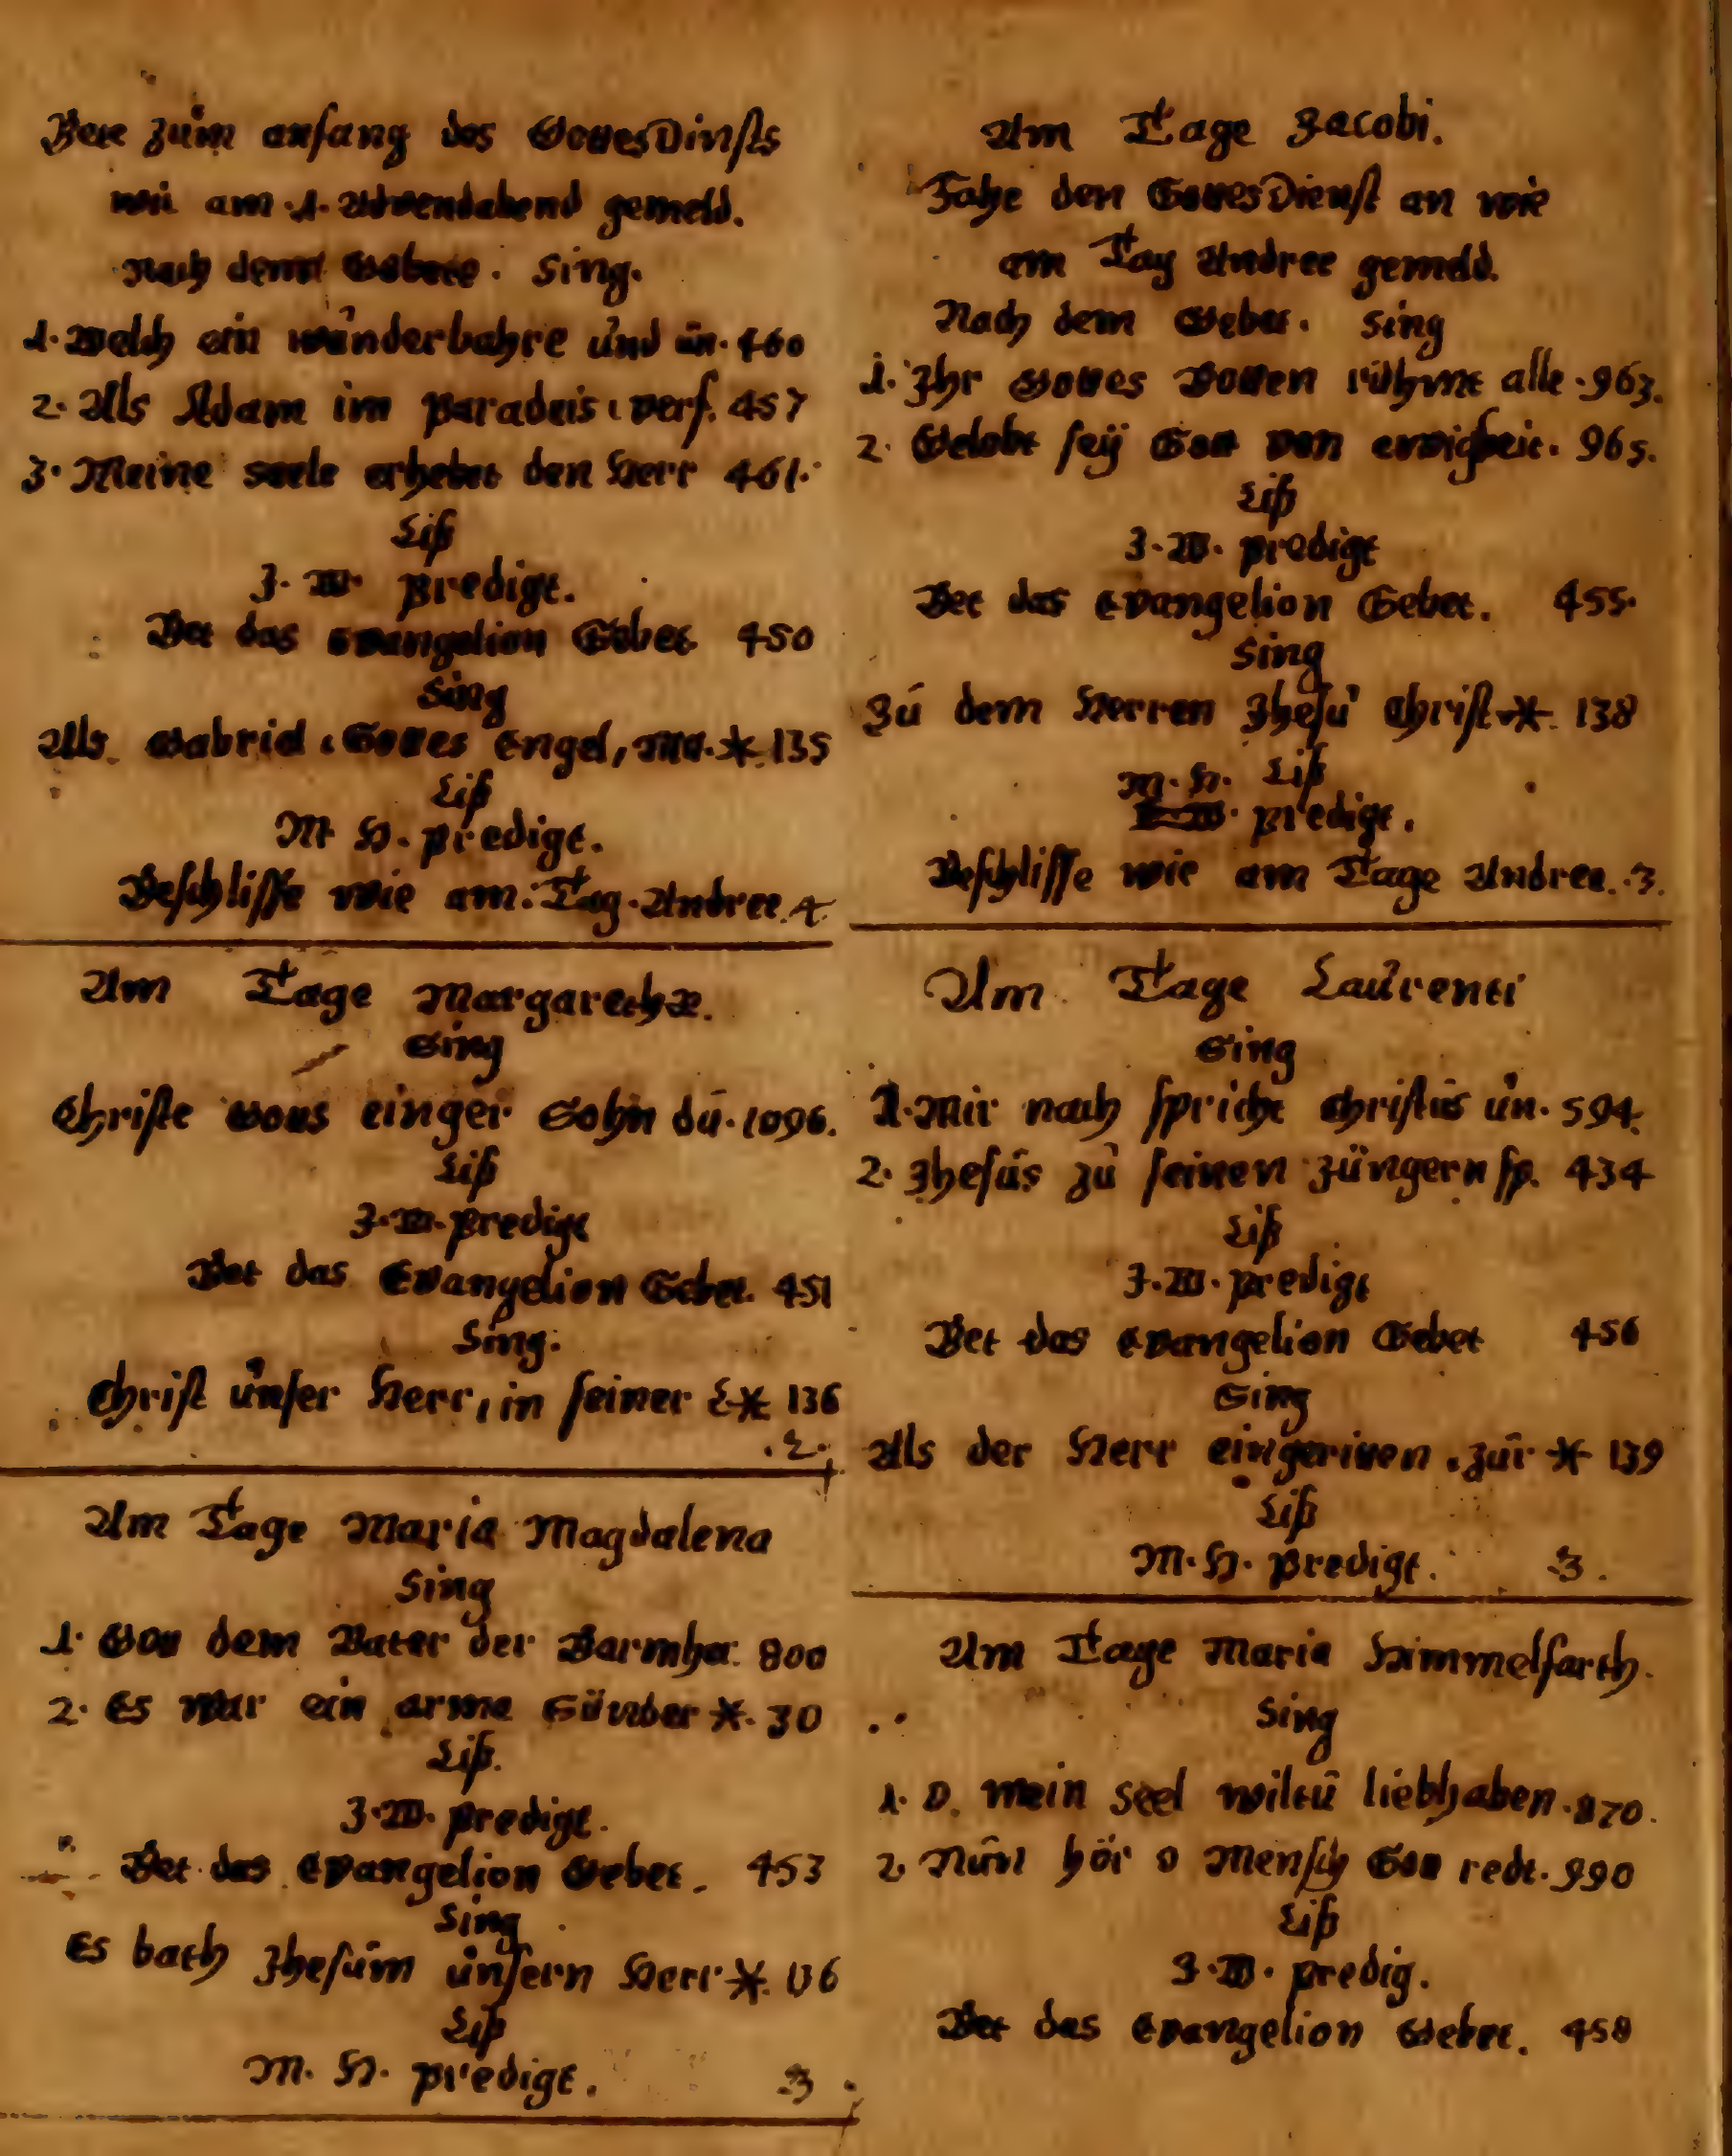 Bett zům anfang des GottesDinsts
wii am .1. Adventabend gemeld.
Nach dem Gebett. Sing.
1. Welch ein wůnderbahre ůnd ůn. 460
2. Als Adam im paradeis verf. 457
3. Meine seele erhebet den Herr 461.
Liß
J. W. predigt.
Bet das Evangelion Gebet 450
Sing
Als Gabriel, Gottes Engel, Ma. * 135
Liß
M. H. predigt.
Beschlisse wie am Tag Andree. 4.
Am Tage Margarethæ.
Sing
Christe Gotts einger Sohn dů. 1096.
Liß
J. W. predigt
Bet das Evangelion Gebet. 451
Sing.
Christ ůnser Herr, in seiner L * 136
.2.
Am Tage Maria Magdalena
Sing
1. Gott dem Vater der Barmher. 800
2. Es war ein arme Sünder *. 30
Liß.
J. W. predigt.
Bet das Evangelion Gebet. 453
Sing
Es bath Jhesům ůnsern Herr *. 136
Liß
M. H. predigt. 3
Am Tage Jacobi.
Fahe den GottesDienst an wie
am Tag Andree gemeld.
Nach dem Gebet. Sing
1. Ihr Gottes Botten rühmt alle. 963.
2. Gelobt seÿ Gott von ewigkeit. 965.
Liß
J. W. predigt
Bet das Evangelion Gebet. 455.
Sing
Zů dem Herren Jhesů Christ * 138
M. H. Liß
predigt.
Beschlisse wie am Tage Andree. 3.
Am Tage Laůrenti
Sing
1. Mir nach spricht Christůs ůn. 594.
2. Jhesůs zů seinen Jüngern sp. 434
Liß
J. W. predigt
Bet das Evangelion Gebet 456
Sing
Als der Herr eingeritten zůr * 139
Liß
M. H. Predigt. 3.
Am Tage Maria Himmelfarth.
Sing
1. O. mein Seel wiltů liebhaben. 870.
2. Nůn hör o Mensch Gott redt. 990
Liß
J. W. predig.
Bet das Evangelion Gebet. 458